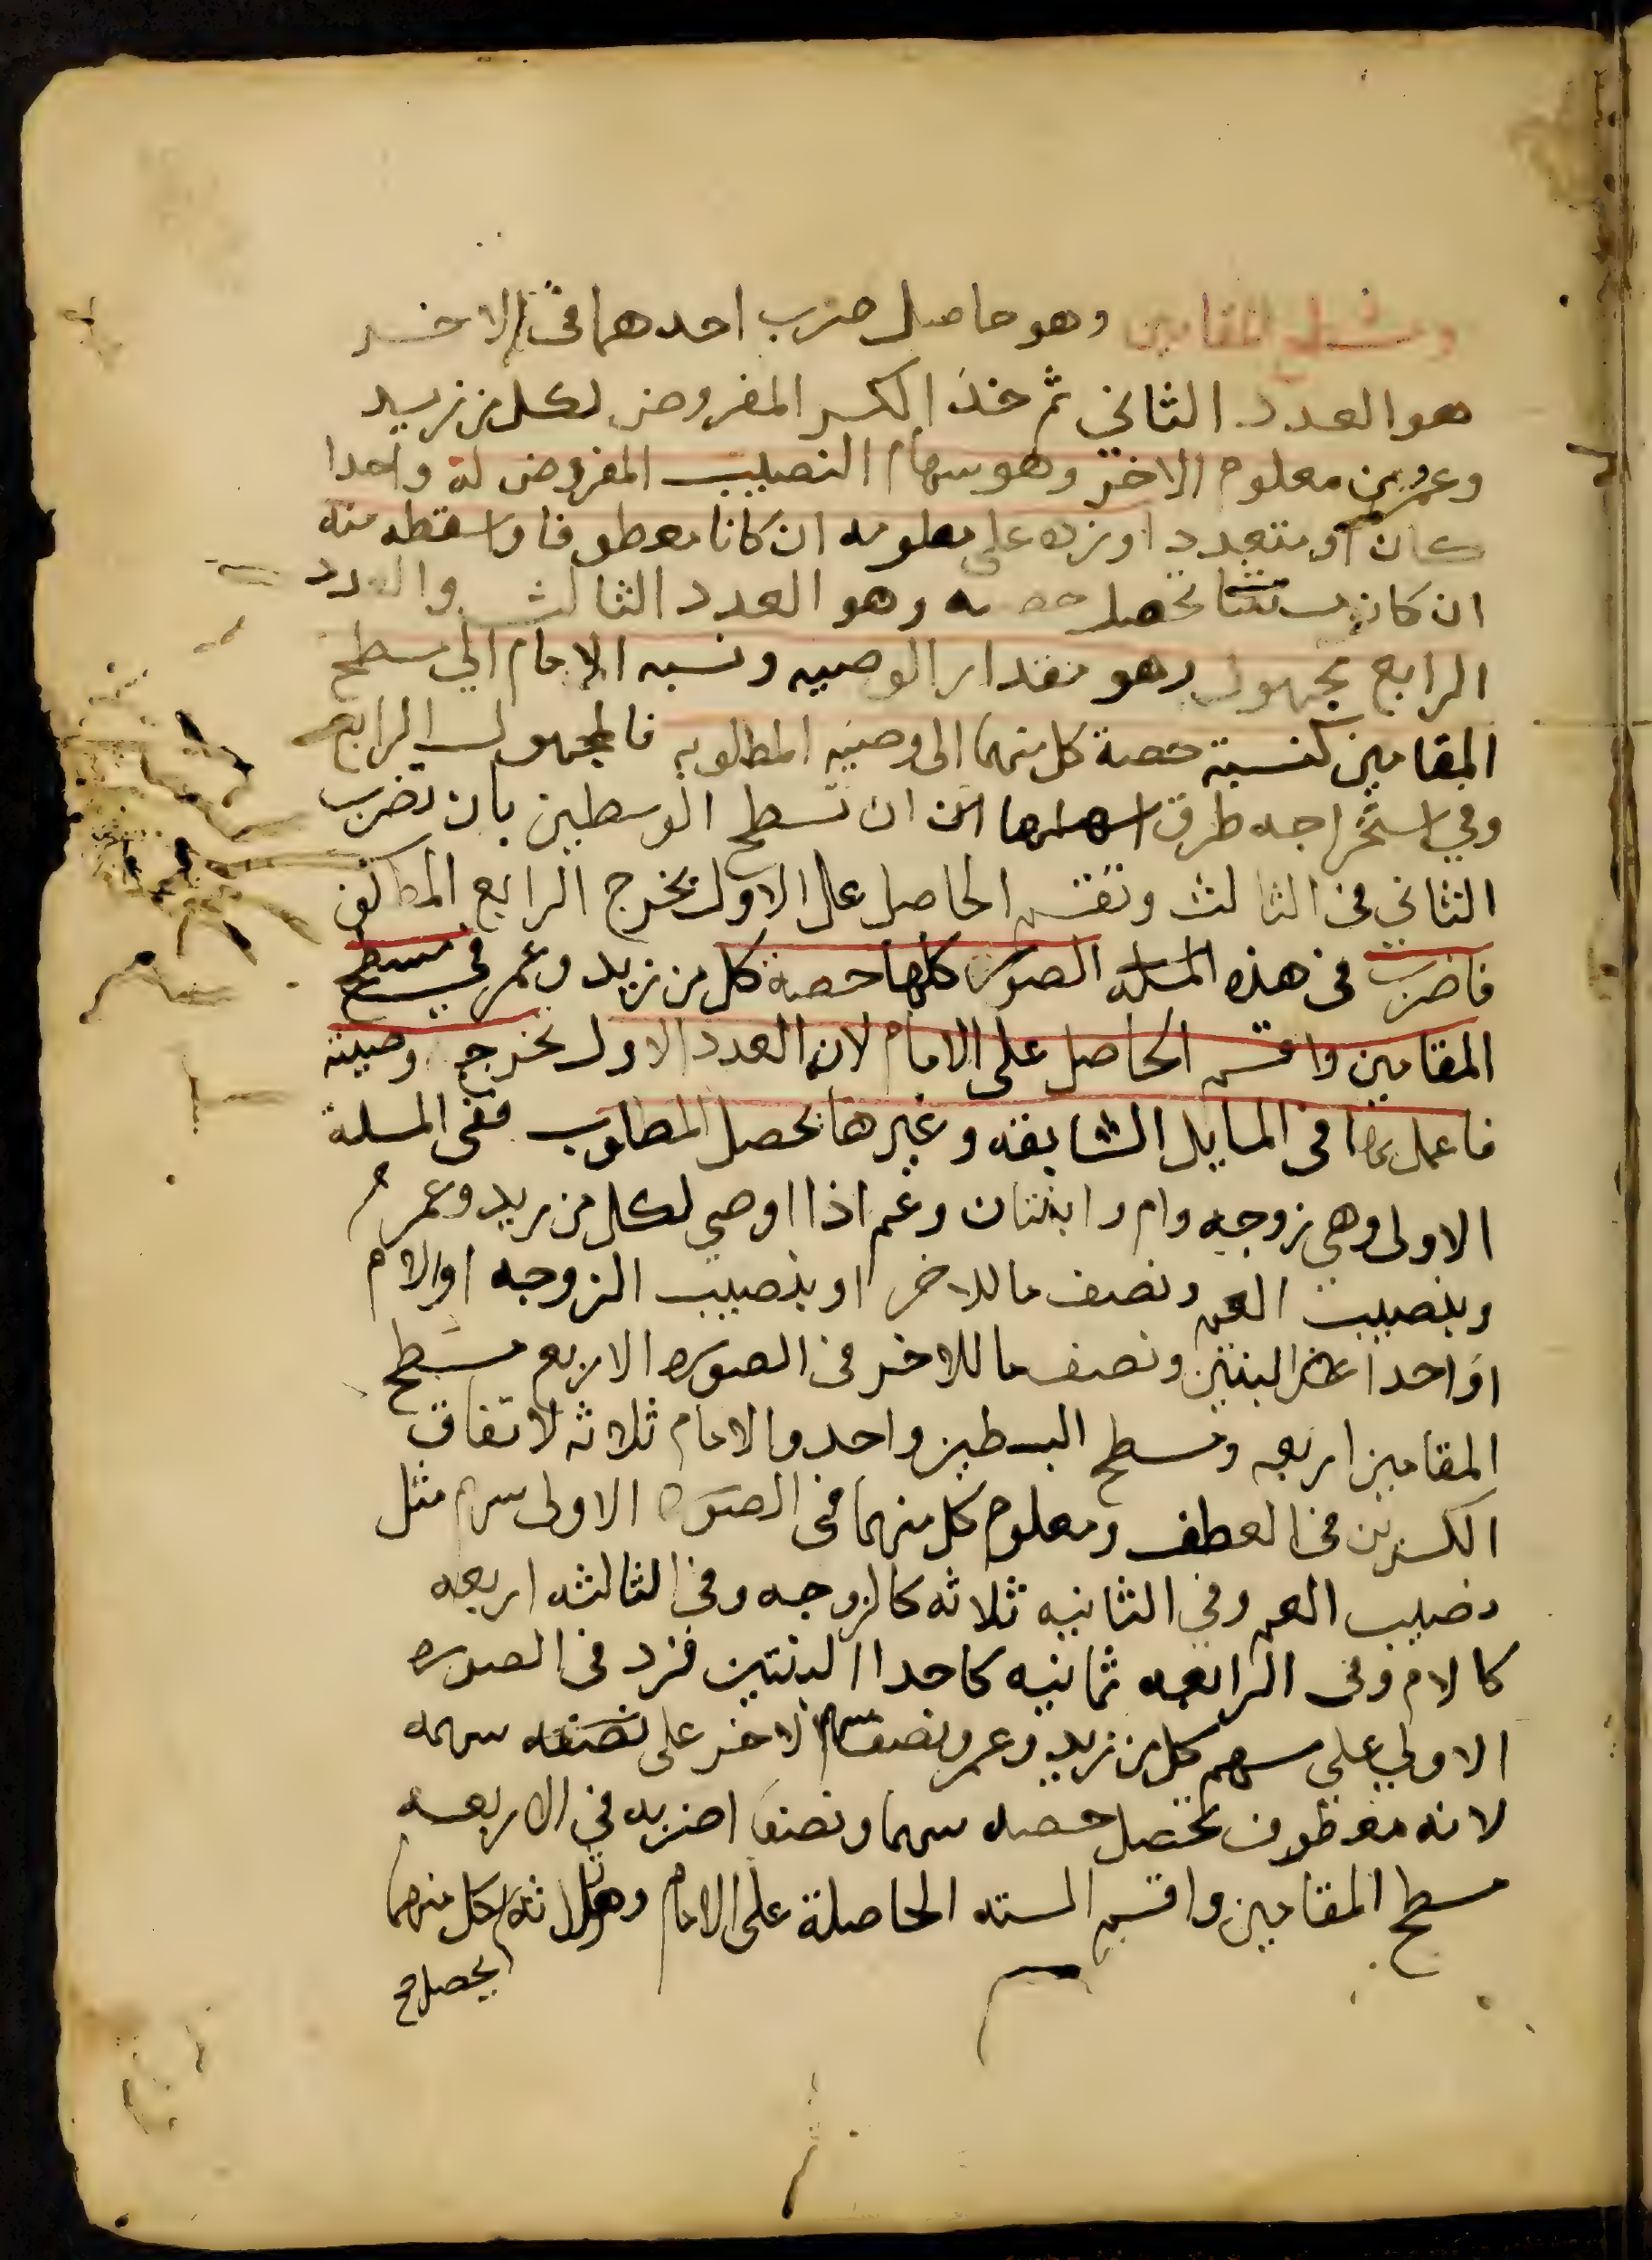 ومسطح المقامين وهو حاصل ضرب احدهما فى الاخر
هو العدد الثاني ثم خذ الكسر المفروض لكل من زيد
وعمر من معلوم الاخر وهو سهام النصيب المفروض له واحدا
كان او متعددا وزده على معلومه ان كانا معطوفا واسقطه منه
ان كان مستثنا تحصل حصته وهو العدد الثالث والعدد
الرابع مجهول وهو مقدار الوصيه ونسبه الامام الي مسطح
المقامين كنسبة حصة كل منهما الى وصيته المطلوبه فالمجهول الرابع
وفي استخراجه طرق اسهلها ان تسطح الوسطين بان تضرب
الثاني في الثالث وتقسم الحاصل على الاول يخرج الرابع
فاضرب فى هذه المسله الصور كلها حصة كل من زيد وعمر في مسطح
المقامين واقسم الحاصل على الامام لانه العدد الاول يخرج وصيته
فاعمل بهذا فى المسايل السابقه وغيرها يحصل المطلوب ففى المسلة
الاولى وهي زوجه وام وابنتان وعم اذا اوصي لكل من زيد وعمر
وبنصيب العم ونصف ما للاخر او بنصيب الزوجه او الام
او احدا البنتين ونصف ما للاخر فى الصوره الاربع مسطح
المقامين اربعه ومسطح البسطين واحد والامام ثلاثه لاتفاق
الكسرين في العطف ومعلوم كل منهما فى الصوره الاولى سهم مثل
نصيب العم وفي الثانيه ثلاثه كالزوجه وفى الثالثه اربعه
كالام وفى الرابعه ثمانيه كاحدا البنتين فزد فى الصوره
الاولي علي سهم كل من زيد وعمر ونصف سهم الاخر على سهمه
لانه معطوف تحصل حصته سهما ونصفا اضربه في الاربعه
مسطح المقامين واقسم السته الحاصلة على الامام وهو ثلاثه لكل منهما
يحصل